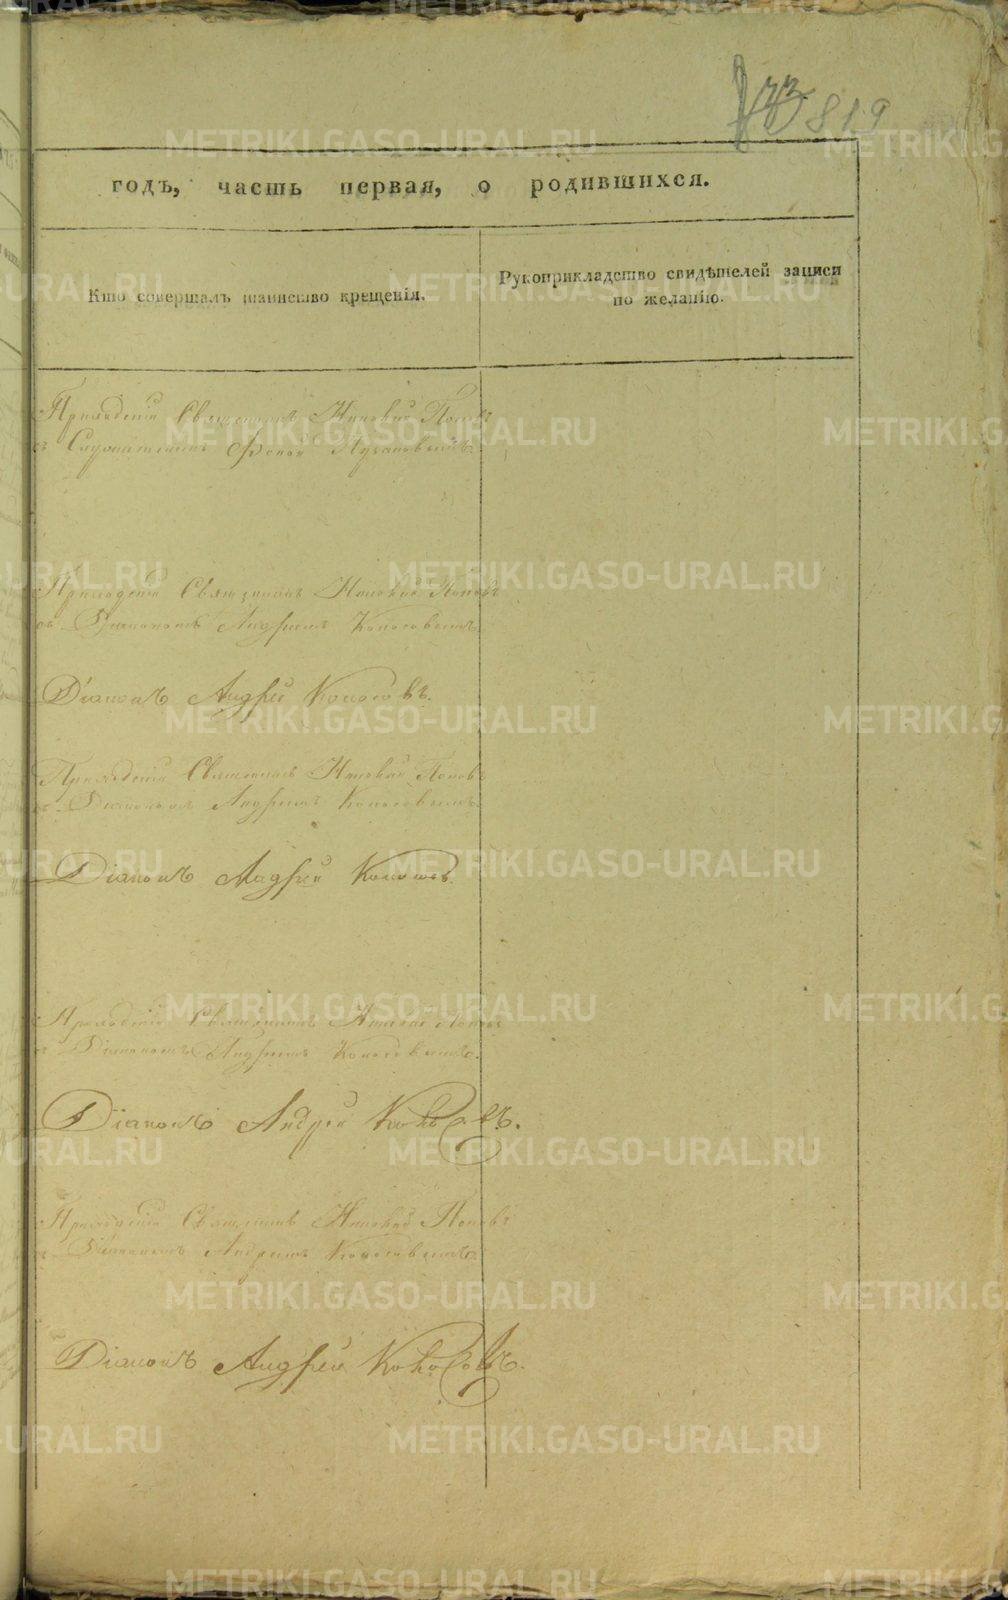 819
годъ, часть первая, о родившихся.
Кто совершалъ таинство крещенія.
Рукоприкладство свидѣтелей записи
по желанію.
Приходскій Священникъ Поповъ
съ
Приходскій Священникъ Поповъ
съ Діакономъ Андреемъ Колосовымъ.
Діаконъ Андрей Колосовъ.
Приходскій Священникъ Поповъ
съ Діакономъ Андреемъ Колосовымъ.
Діаконъ Андрей Колосовъ.
Приходскій Священникъ Поповъ
съ Діакономъ Андреемъ Колосовымъ.
Діаконъ Андрей Колосовъ.
Приходскій Священникъ Поповъ
съ Діакономъ Андреемъ Колосовымъ.
Діаконъ Андрей Колосовъ.
METRIKI.GASO-URAL.RU